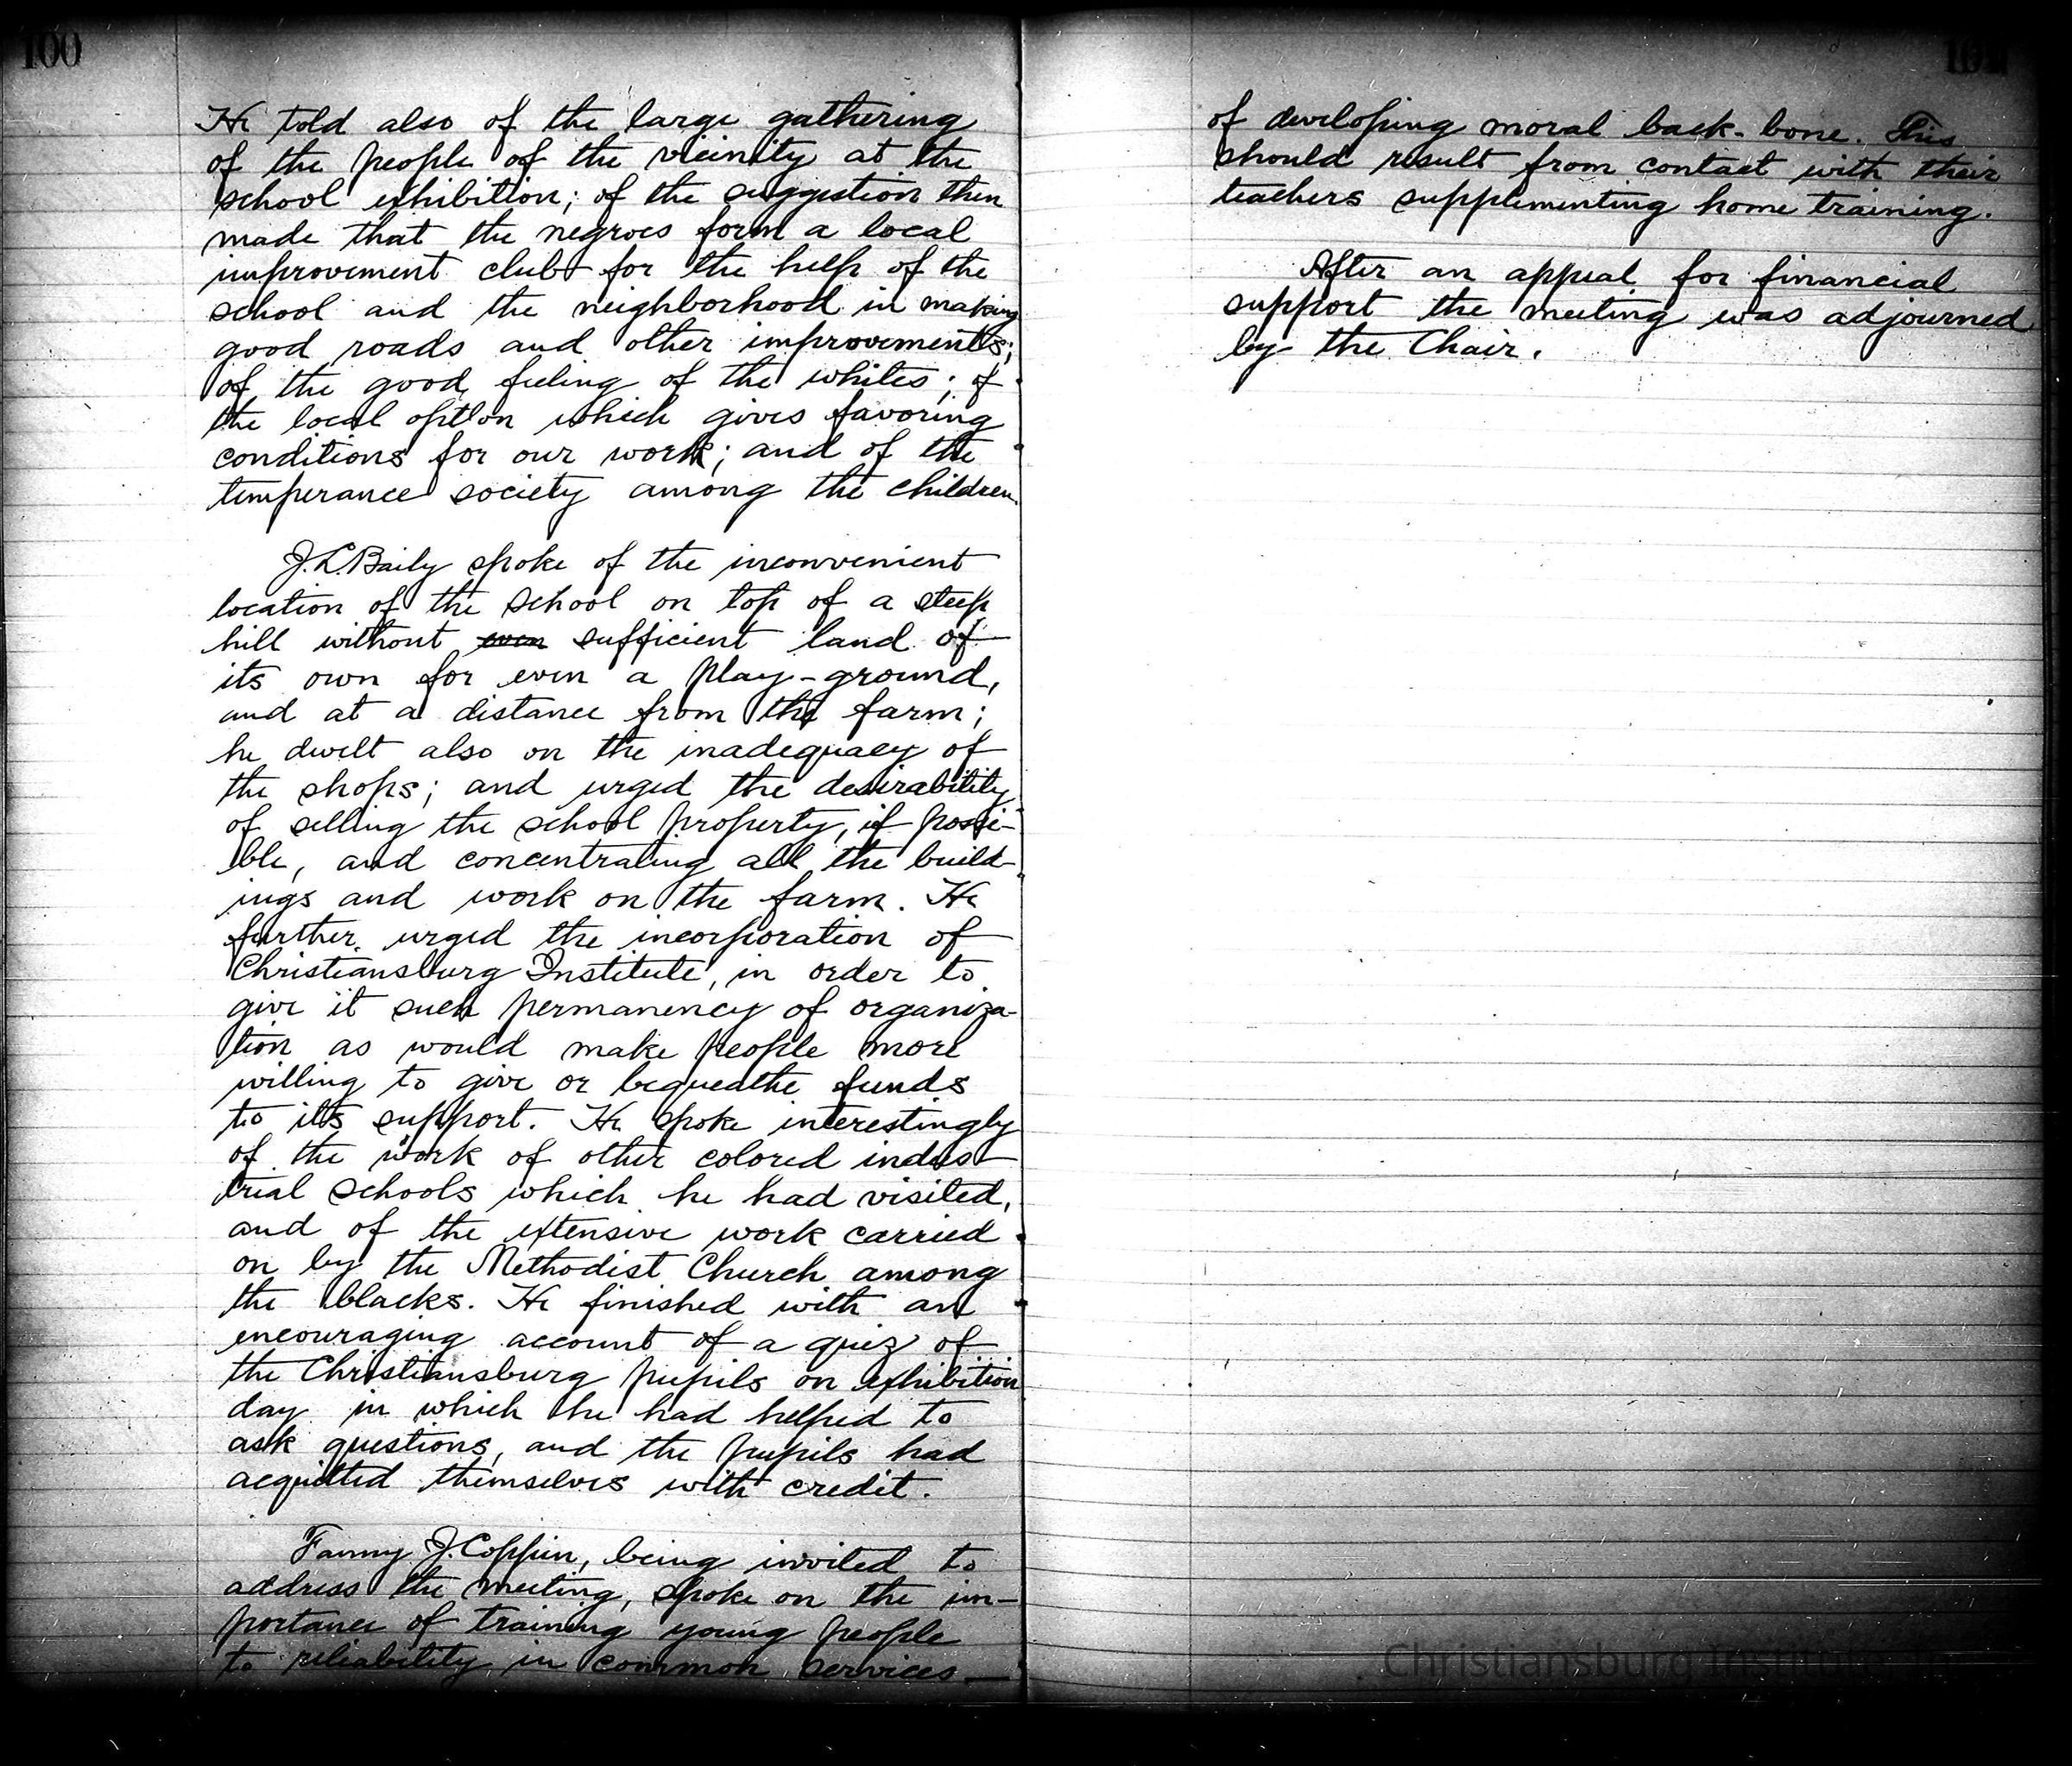 100
He told also of the large gathering
of the people of the vicinity at the
school exhibition; of the suggestion then
made that the negroes form a local
improvement club for the help of the
school and the neighborhood in making
good roads and other improvements;
of the good feeling of the whites; of
the local option which gives favoring
conditions for our work; and of the
temperance society among the children.
J.L. Baily spoke of the inconvenient
location of the school on top of a steep
hill without even sufficient land of
its own for even a play-ground,
and at a distance from the farm;
he dwelt also on the inadequacy of
the shops; and urged the desirability
of selling the school property, if possi-
ble, and concentrating all the build-
ings and work on the farm. He
further urged the incorporation of
Christiansburg Institute, in order to
give it such permanency of organiza-
tion as would make people more
willing to give or bequeathe funds
to its support. He spoke interestingly
of the work of other colored indus-
trial schools which he had visited,
and of the extensive work carried
on by the Methodist Church among
the blacks. He finished with an
encouraging account of a quiz of
the Christiansburg pupils on exhibition
day in which he had helped to
ask questions, and the pupils had
acquitted themselves with credit.
Fanny J. Coppin, being invited to
address the meeting, spoke on the im-
portance of training young people
to reliability in common services—
101
of developing moral back-bone. This
should result from contact with their
teachers supplementing home training.
After an appeal for financial
support the meeting was adjourned
by the Chair.
Christiansburg Institute